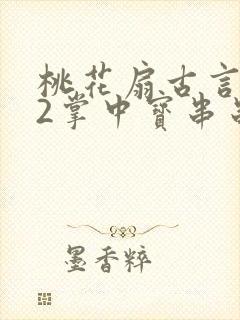 桃花扇古言
2掌中寳串
墨香粹